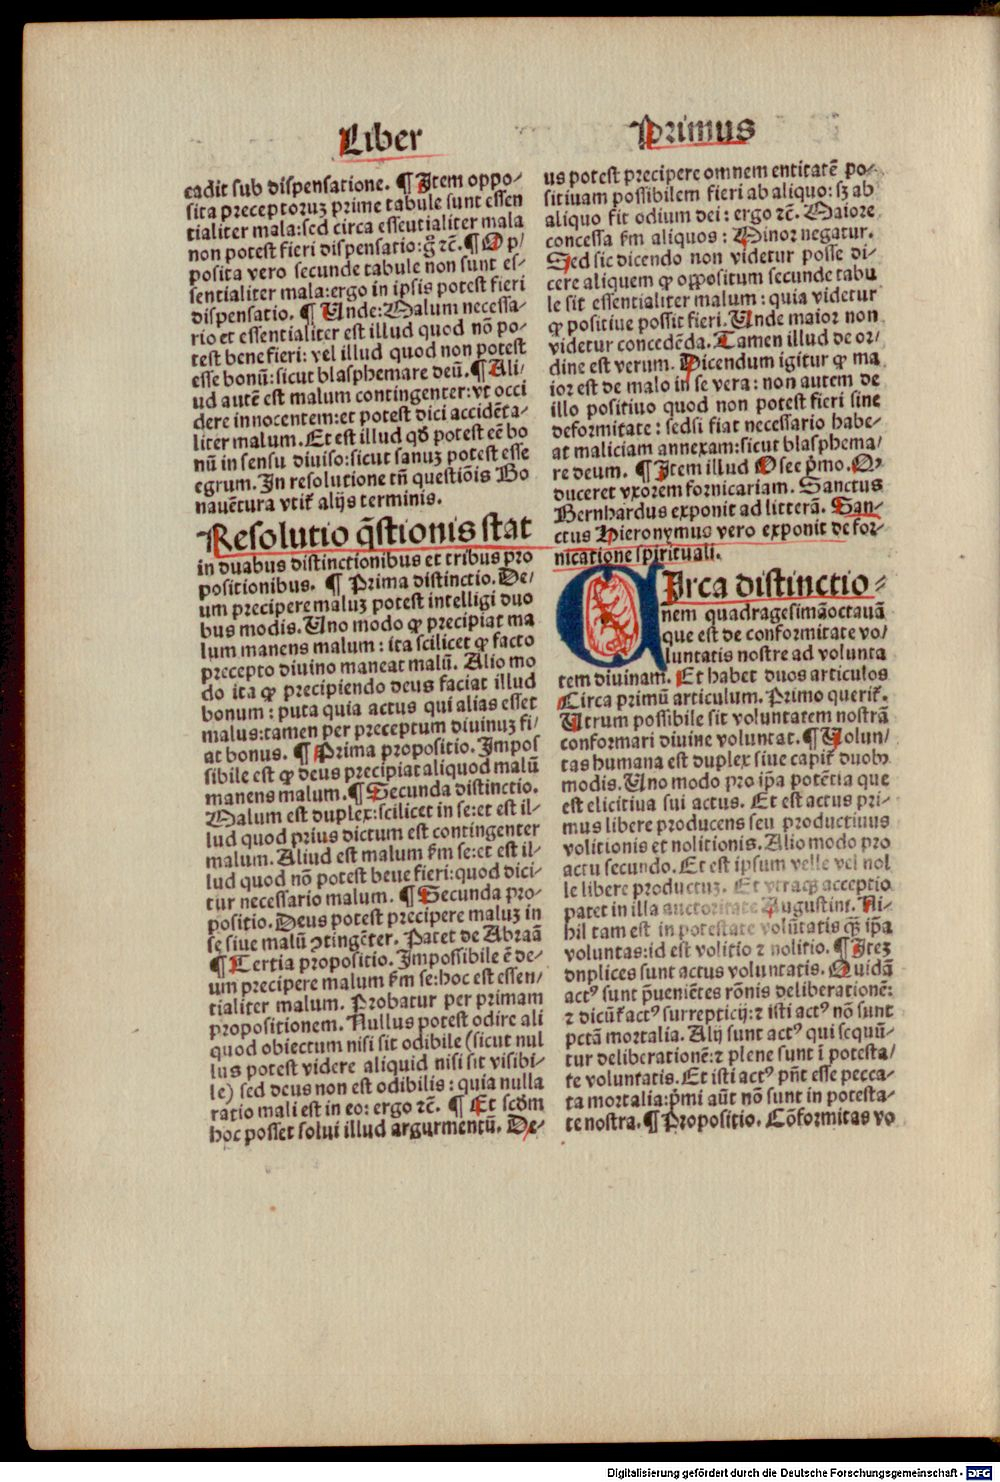 Liber
Primus
cadit sub dispensatione. ¶ Item oppo-
sita preceptoruꝫ prime tabule sunt essen
tialiter mala:sed circa esseutialiter mala
non potest fieri dispensatio:g̃ ⁊c̃. ¶ Op/
posita vero secunde tabule non sunt es-
sentialiter mala:ergo in ipsis potest fieri
dispensatio. ¶ Unde:Malum necessa-
rio et essentialiter est illud quod nõ po-
test bene fieri: vel illud quod non potest
esse bonũ:sicut blasphemare deũ. ¶ Ali/
ud autẽ est malum contingenter:vt occi
dere innocentem:et potest dici accidẽta-
liter malum. Et est illud qd̃ potest eẽ bo
nũ in sensu diuiso:sicut sanuꝫ potest esse
egrum. In resolutione tñ questiõis Bo
nauẽtura vtit̃ alijs terminis.
Resolutio q̃stionis stat
in duabus distinctionibus et tribus pro
positionibus. ¶ Prima distinctio. De/
um precipere maluꝫ potest intelligi duo
bus modis. Uno modo ꝙ precipiat ma
lum manens malum : ita scilicet ꝙ facto
precepto diuino maneat malũ. Alio mo
do ita ꝙ precipiendo deus faciat illud
bonum : puta quia actus qui alias esset
malus:tamen per preceptum diuinuꝫ fi/
at bonus. ¶ Prima propositio. Impos
sibile est ꝙ deus precipiat aliquod malũ
manens malum. ¶ Secunda distinctio.
Malum est duplex:scilicet in se:et est il-
lud quod prius dictum est contingenter
malum. Aliud est malum ẜm se:et est il-
lud quod nõ potest bene fieri:quod dici-
tur necessario malum. ¶ Secunda pro-
positio. Deus potest precipere maluꝫ in
se siue malũ ↄtingẽter. Patet de Abraã
¶ Tertia propositio. Impossibile ẽ de-
um precipere malum ẜm se:hoc est essen/
tialiter malum. Probatur per primam
propositionem. Nullus potest odire ali
quod obiectum nisi sit odibile (sicut nul
lus potest videre aliquid nisi sit visibi-
le) sed deus non est odibilis : quia nulla
ratio mali est in eo: ergo ⁊c̃. ¶ Et scd̃m
hoc posset solui illud argurmentũ. De-
us potest precipere omnem entitatẽ po-
sitiuam possibilem fieri ab aliquo: sꝫ ab
aliquo fit odium dei : ergo ⁊c̃. Maiore
concessa ẜm aliquos : Minor negatur.
Sed sic dicendo non videtur posse di-
cere aliquem ꝙ oppositum secunde tabu
le sit essentialiter malum : quia videtur
ꝙ positiue possit fieri. Unde maior non
videtur concedẽda. Tamen illud de or/
dine est verum. Dicendum igitur ꝙ ma
ior est de malo in se vera : non autem de
illo positiuo quod non potest fieri sine
deformitate : sedsi fiat necessario habe-
at maliciam annexam:sicut blasphema/
re deum. ¶ Item illud Osee p̃mo. Q
duceret vxorem fornicariam. Sanctus
Bernhardus exponit ad litterã. San-
ctus Hieronymus vero exponit de for-
nicatione spirituali.
CIrca distinctio-
nem quadragesimãoctauã
que est de conformitate vo/
luntatis nostre ad volunta
tem diuinam. Et habet duos articulos
Circa primũ articulum. Primo querit̃.
Utrum possibile sit voluntatem nostrã
conformari diuine voluntat. ¶ Volun/
tas humana est duplex siue capit̃ duobꝫ
modis. Uno modo pro ip̃a potẽtia que
est elicitiua sui actus. Et est actus pri-
mus libere producens seu productiuus
volitionis et nolitionis. Alio modo pro
actu secundo. Et est ipsum velle vel nol
le libere productuꝫ. Et vtraqꝫ acceptio
patet in illa auctoritate Augustini. Ni-
hil tam est in potestate volũtatis qꝫ̃ ip̃a
voluntas:id est volitio ⁊ nolitio. ¶ Iteꝫ
dnplices sunt actus voluntatis. Quidã
actꝰ sunt p̃ueniẽtes rõnis deliberationẽ:
⁊ dicũt̃ actꝰ surrepticij:⁊ isti actꝰ nõ sunt
pctã mortalia. Alij sunt actꝰ qui sequũ-
tur deliberationẽ:⁊ plene sunt ĩ potesta/
te voluntatis. Et isti actꝰ pñt esse pecca-
ta mortalia:p̃mi aũt nõ sunt in potesta-
te nostra. ¶ Propositio. Cõformitas vo
Digitalisierung gefördert durch die Deutsche Forschungsgemeinschaft - DFG